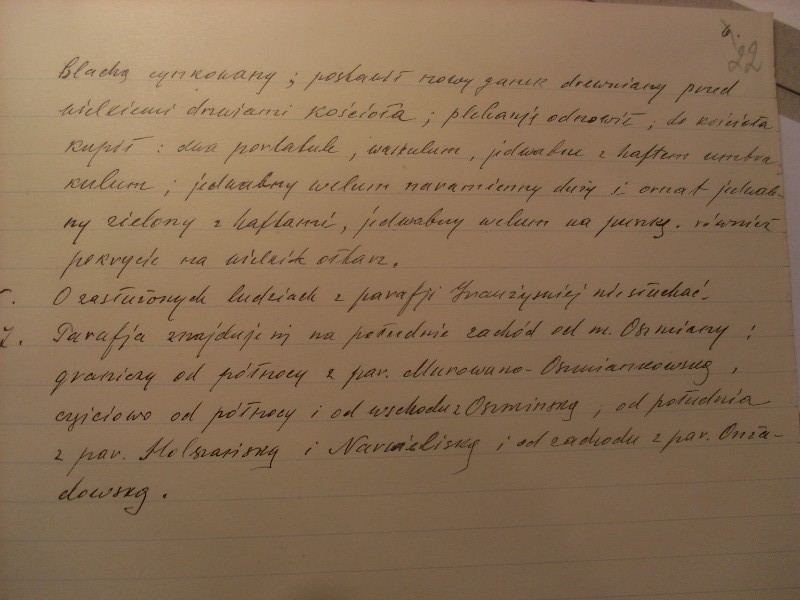 22
blachą cynkowany; postawił nowy ganek drewniany przed
wielkiemi drzwiami kościoła; plebanję odnowił; do kościoła
kupił: dwa portatule, waskulum, jedwabne z haftem umbra-
kulum; jedwabny welum naramienny duży i ornat jedwab-
ny zielony z haftami, jedwabny welum na puszkę. również
pokrycie na wielki ołtarz.
O zasłużonych ludziach z parafji Graużyskiej nie słuchać.
7. Parafja znajduje się na południe zachód od m. Oszmiany;
graniczy od północy z par. Murowano-Oszmiankowską,
częściowo od północy i od wschodu z Oszmińską, od południa
z par. Holszańską i Narwieliską i od zachodu z par. Onża-
dowską.